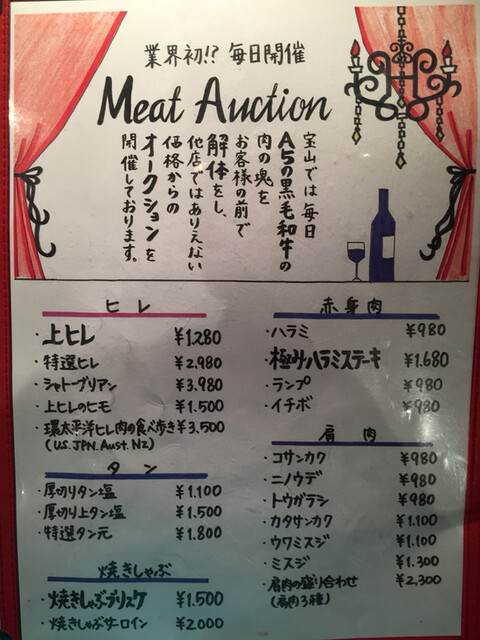 業界初!? 毎日開催
Meat Auction
宝山では毎日
A5の黒毛和牛の
肉の塊を
お客様の前で
解体をし、
他店ではありえない
価格からの
オークションを
開催しております。
ヒレ
・上ヒレ ¥1,280
・特選ヒレ ¥2,980
・シャトーブリアン ¥3,980
・上ヒレのヒモ ¥1,500
・環太平洋ヒレ肉の食べ歩き ¥3,500
(U.S. JPN. Aust. NZ)
タン
・厚切りタン塩 ¥1,100
・厚切り上タン塩 ¥1,500
・特選タン元 ¥1,800
焼きしゃぶ
・焼きしゃぶブリスケ ¥1,500
・焼きしゃぶサーロイン ¥2,000
赤身肉
・ハラミ ¥980
・極みハラミステーキ ¥1,680
・ランプ ¥980
・イチボ ¥980
肩肉
・コサンカク ¥980
・ニノウデ ¥980
・トウガラシ ¥980
・カタサンカク ¥1,100
・ウワミスジ ¥1,100
・ミスジ ¥1,300
・肩肉の盛り合わせ ¥2,300
(肩肉3種)